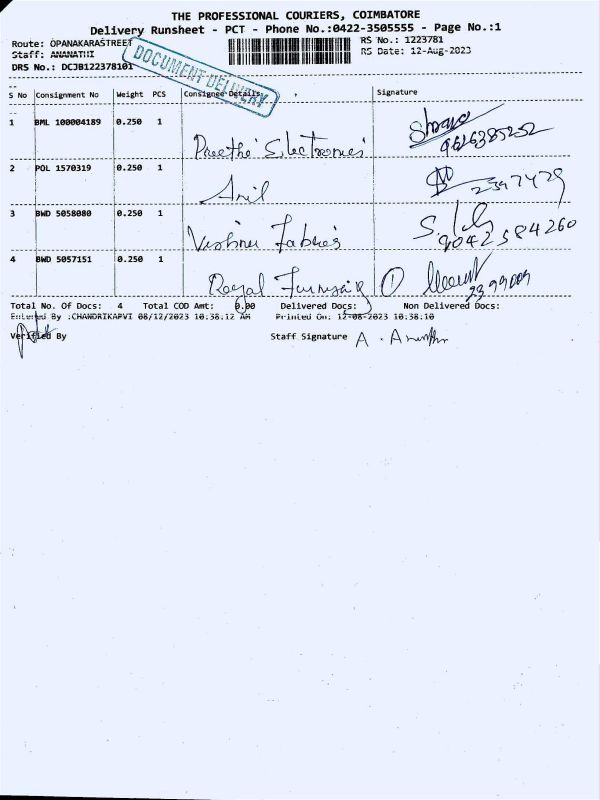 THE PROFESSIONAL COURIERS, COIMBATORE
Delivery Runsheet - PCT - Phone No.:0422-3505555 - Page No.:1
Route: OPANAKARASTREET
RS No.: 1223781
Staff: ANANATHI
RS Date: 12-Aug-2023
DRS No.: DCJB122378101
DOCUMENT DELIVERY
S No Consignment No Weight PCS Consignee Details Signature
1 BML 100004189 0.250 1 Preethi Electronics 9626385252
2 POL 1570319 0.250 1 Anil 2397479
3 BWD 5058080 0.250 1 Vishnu Fabrics 9042584260
4 BWD 5057151 0.250 1 Royal 2399009
Total No. Of Docs: 4 Total COD Amt: 0.00 Delivered Docs: Non Delivered Docs:
Entered By :CHANDRIKAPVI 08/12/2023 10:38:12 AM Printed On: 12-08-2023 10:38:10
Verified By Staff Signature A.